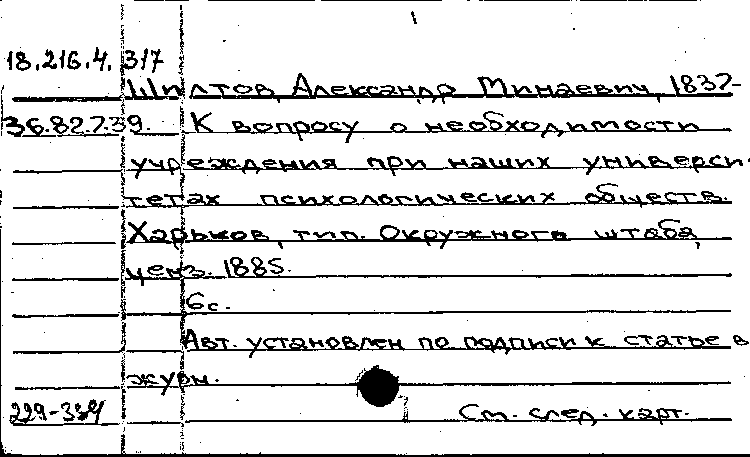 18.216.4.317
Шилтов, Александр Минаевич, 1837-
36.82.7.39. К вопросу о необходимости
учреждения при наших универси-
тетах психологических обществ.
Харьков, тип. Окружного штаба,
ценз. 1885.
6с.
Авт. установлен по подписи к статье в
журн.
229-334 См. след. карт.